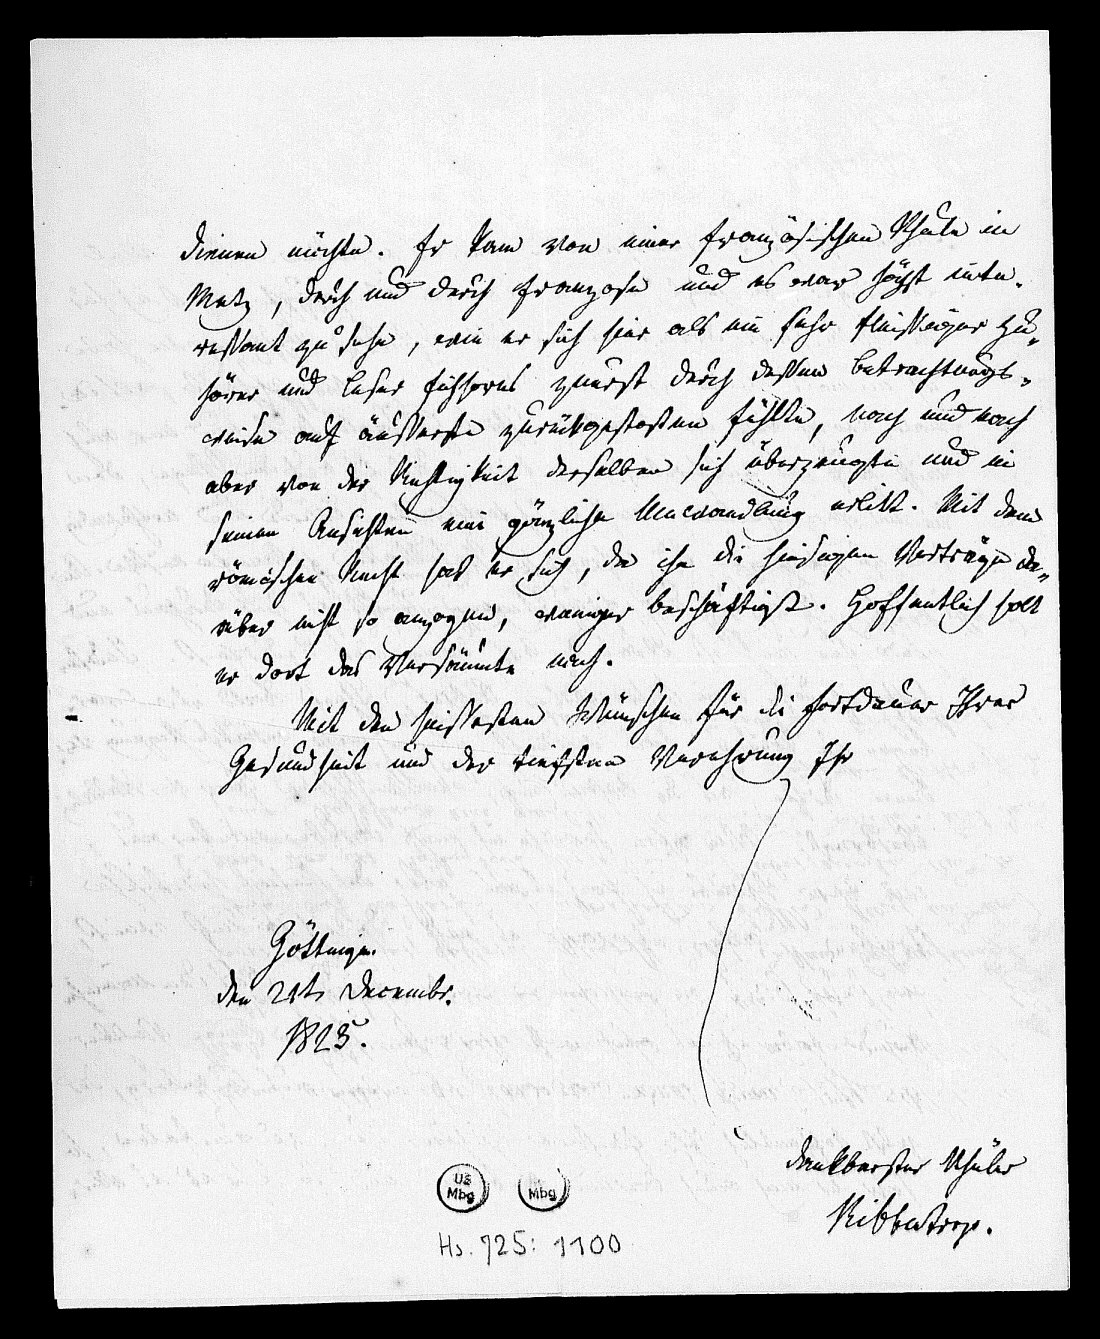 dienen möchte. Er kam von einer französischen Schule in
Metz, durch und durch Franzose und es war höchst inte-
ressant zu sehn, wie er sich hier als ein sehr fleissiger Zu-
hörer und Leser zuerst durch dessen Betrachtungs-
weise auf äusserste zurückgestossen fühlte, nach und nach
aber von der Richtigkeit derselben sich überzeugte und in
seinen Ansichten eine gänzliche Umwandlung erlitt. Mit dem
römischen Recht hat er sich, da ihn die hiesigen Vorträge da-
rüber nicht so anzogen, weniger beschäftigt. Hoffentlich holt
er dort das Versäumte nach.
Mit den heissesten Wünschen für die Fortdauer Ihrer
Gesundheit und der tiefsten Verehrung Ihr
Göttingen
den 21ts Decembr.
1825.
dankbarster Schüler
Ribbentrop.
UB
Mbg
Mbg
Hs. 725: 1100